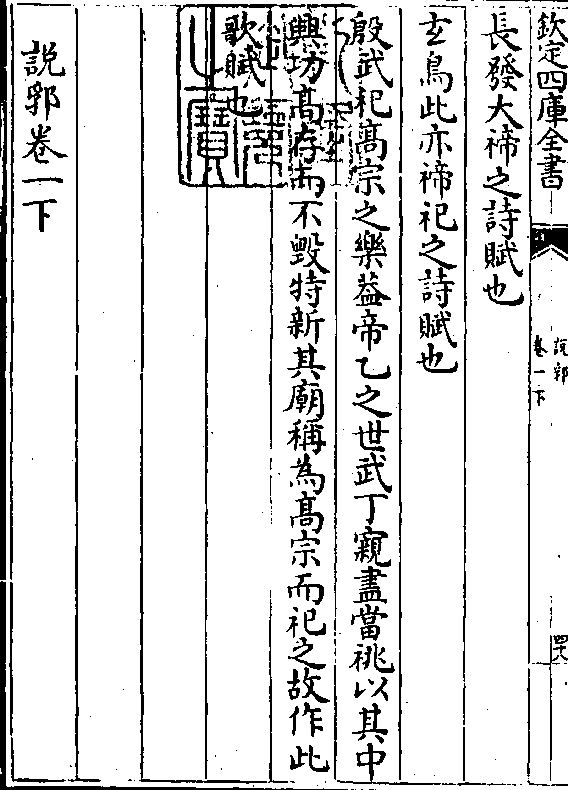 欽定四庫全書
說郛
卷一下
長發大禘之詩賦也
玄鳥此亦禘祀之詩賦也
殷武祀高宗之樂葢帝乙之世武丁親盡當祧以其中
興功高存而不毀特新其廟稱為高宗而祀之故作此
歌賦也
說郛卷一下